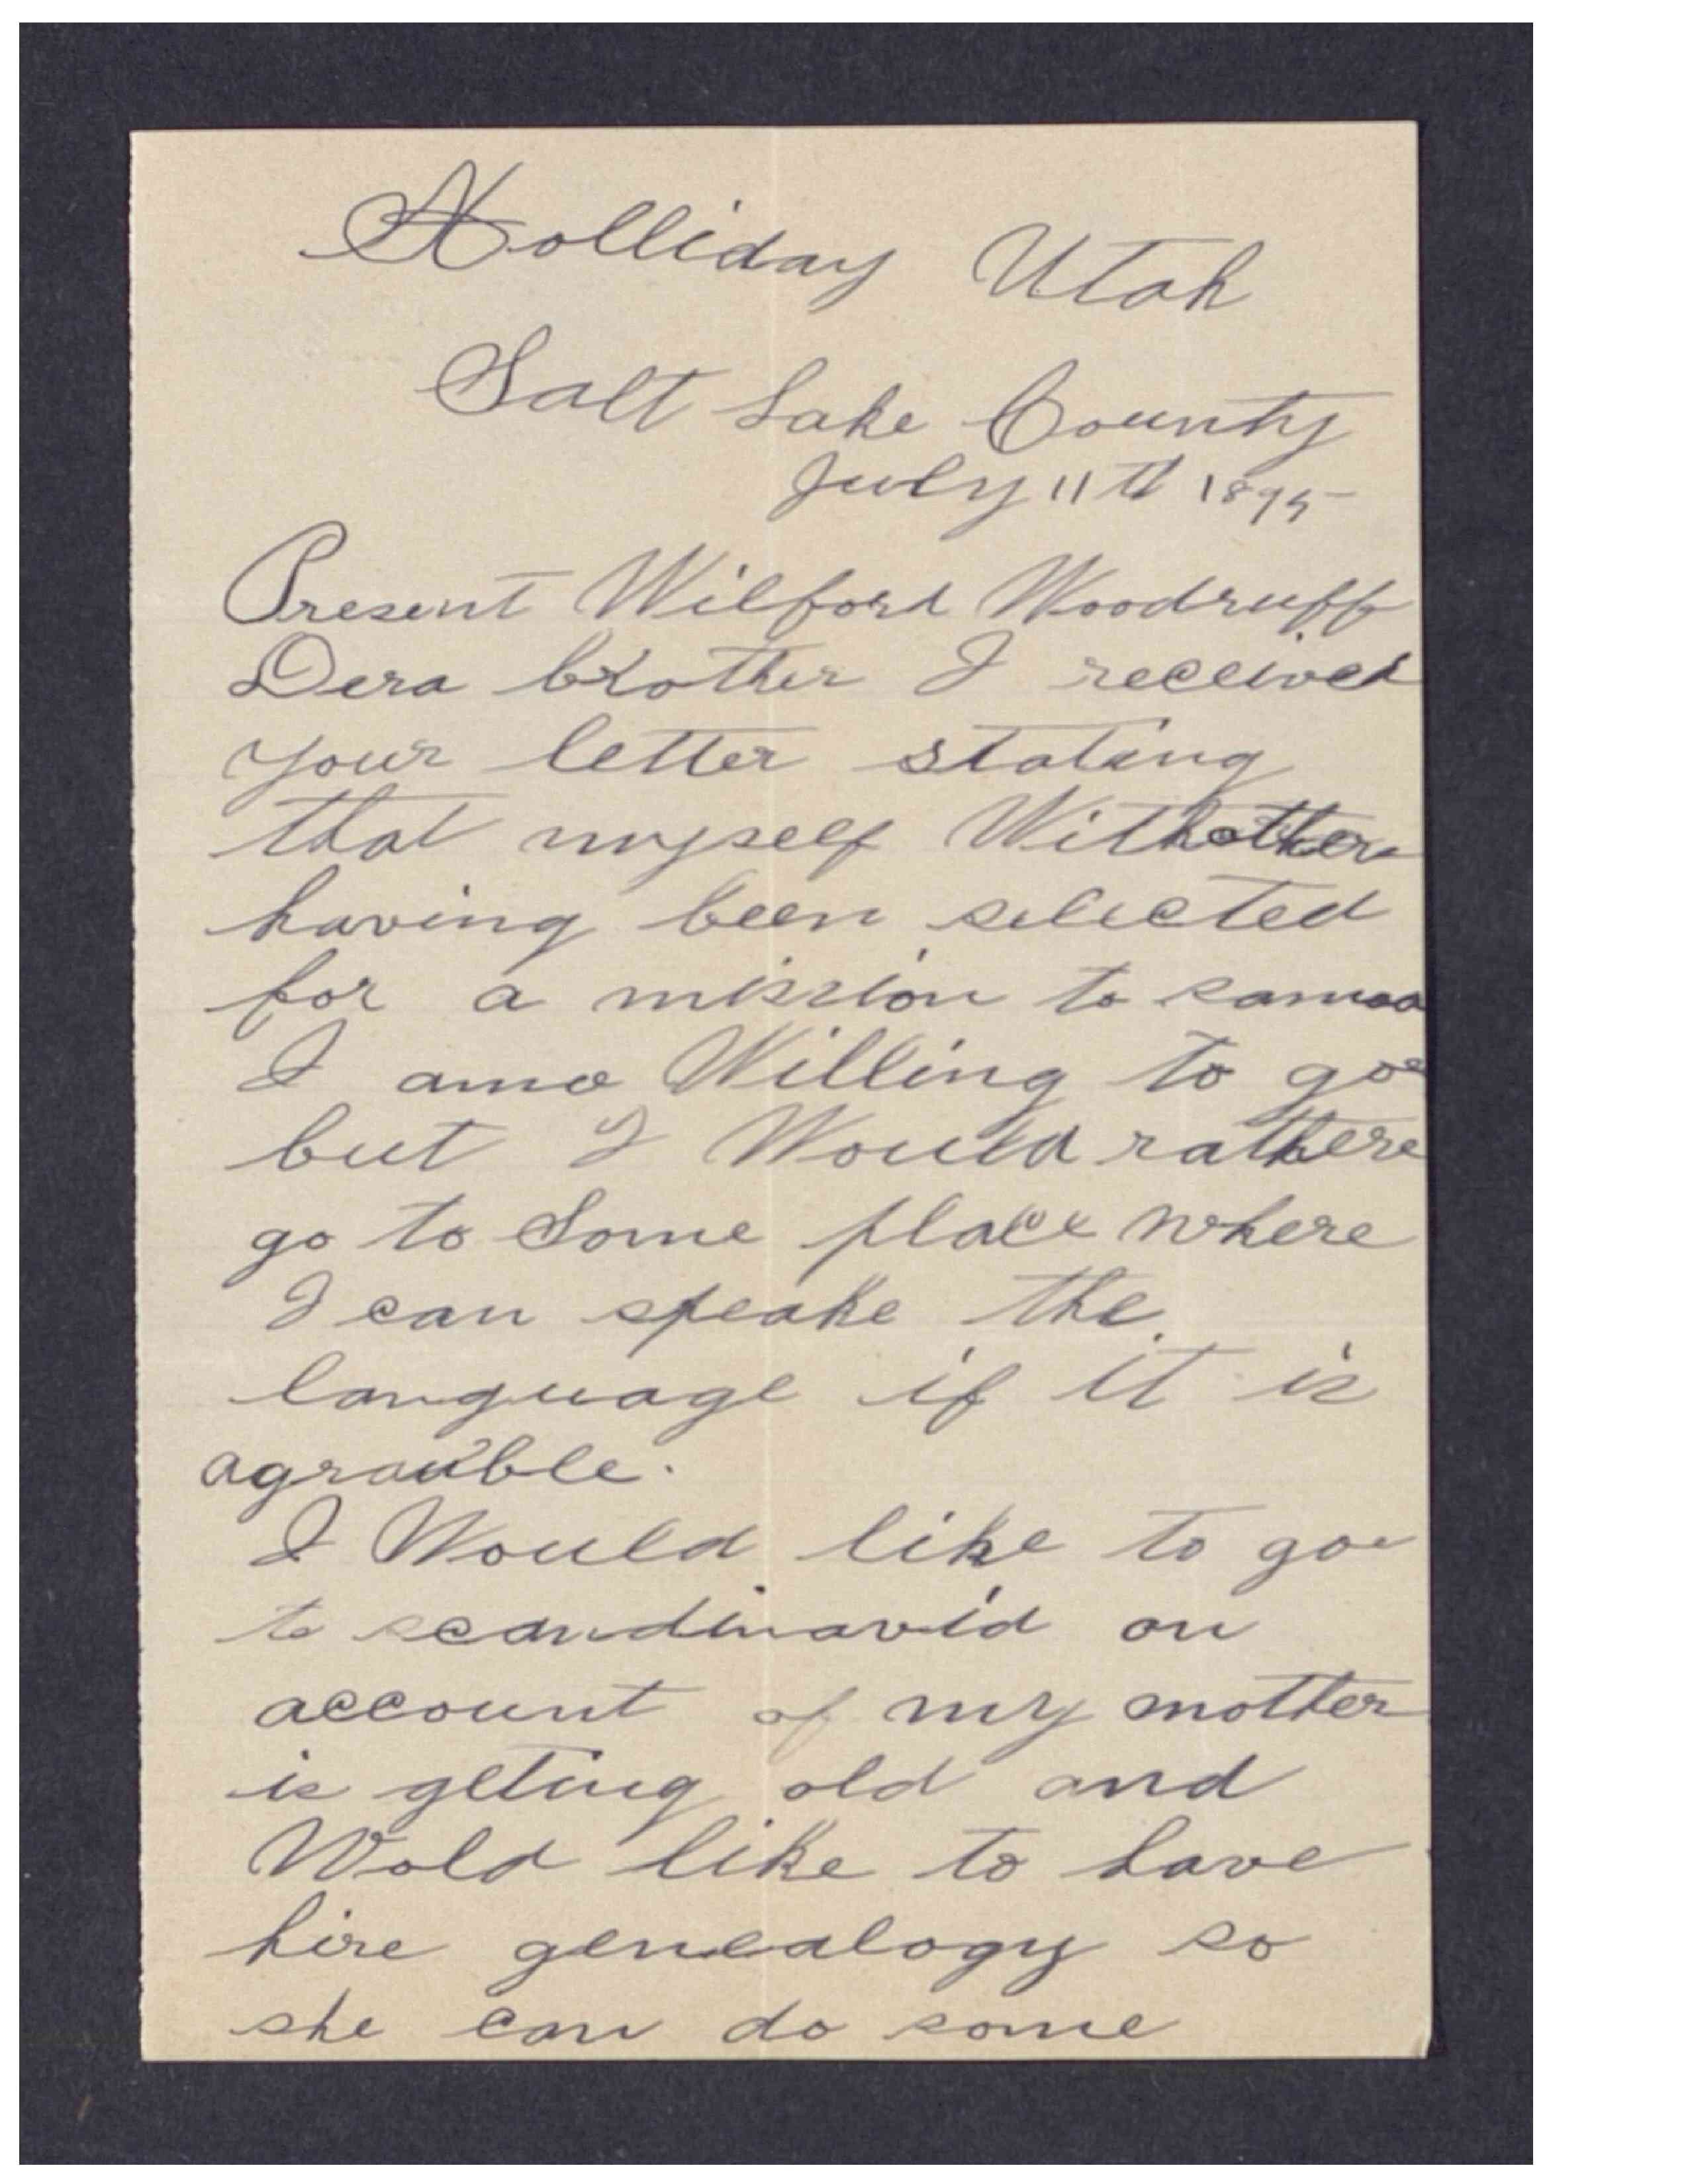 Holliday Utah
Salt Lake County
July 11th 1895
Present Wilford Woodruff
Dera brother I received
your letter stating
that myself With others
having been selected
for a mission to samoa
I ame Willing to goe
but I Would rathere
go to Some place where
I can speake the
language if it is
agrauble.
I Would like to goe
to scandinavid on
account of my mother
is geting old and
Wold like to have
hire genealogy so
she can do some